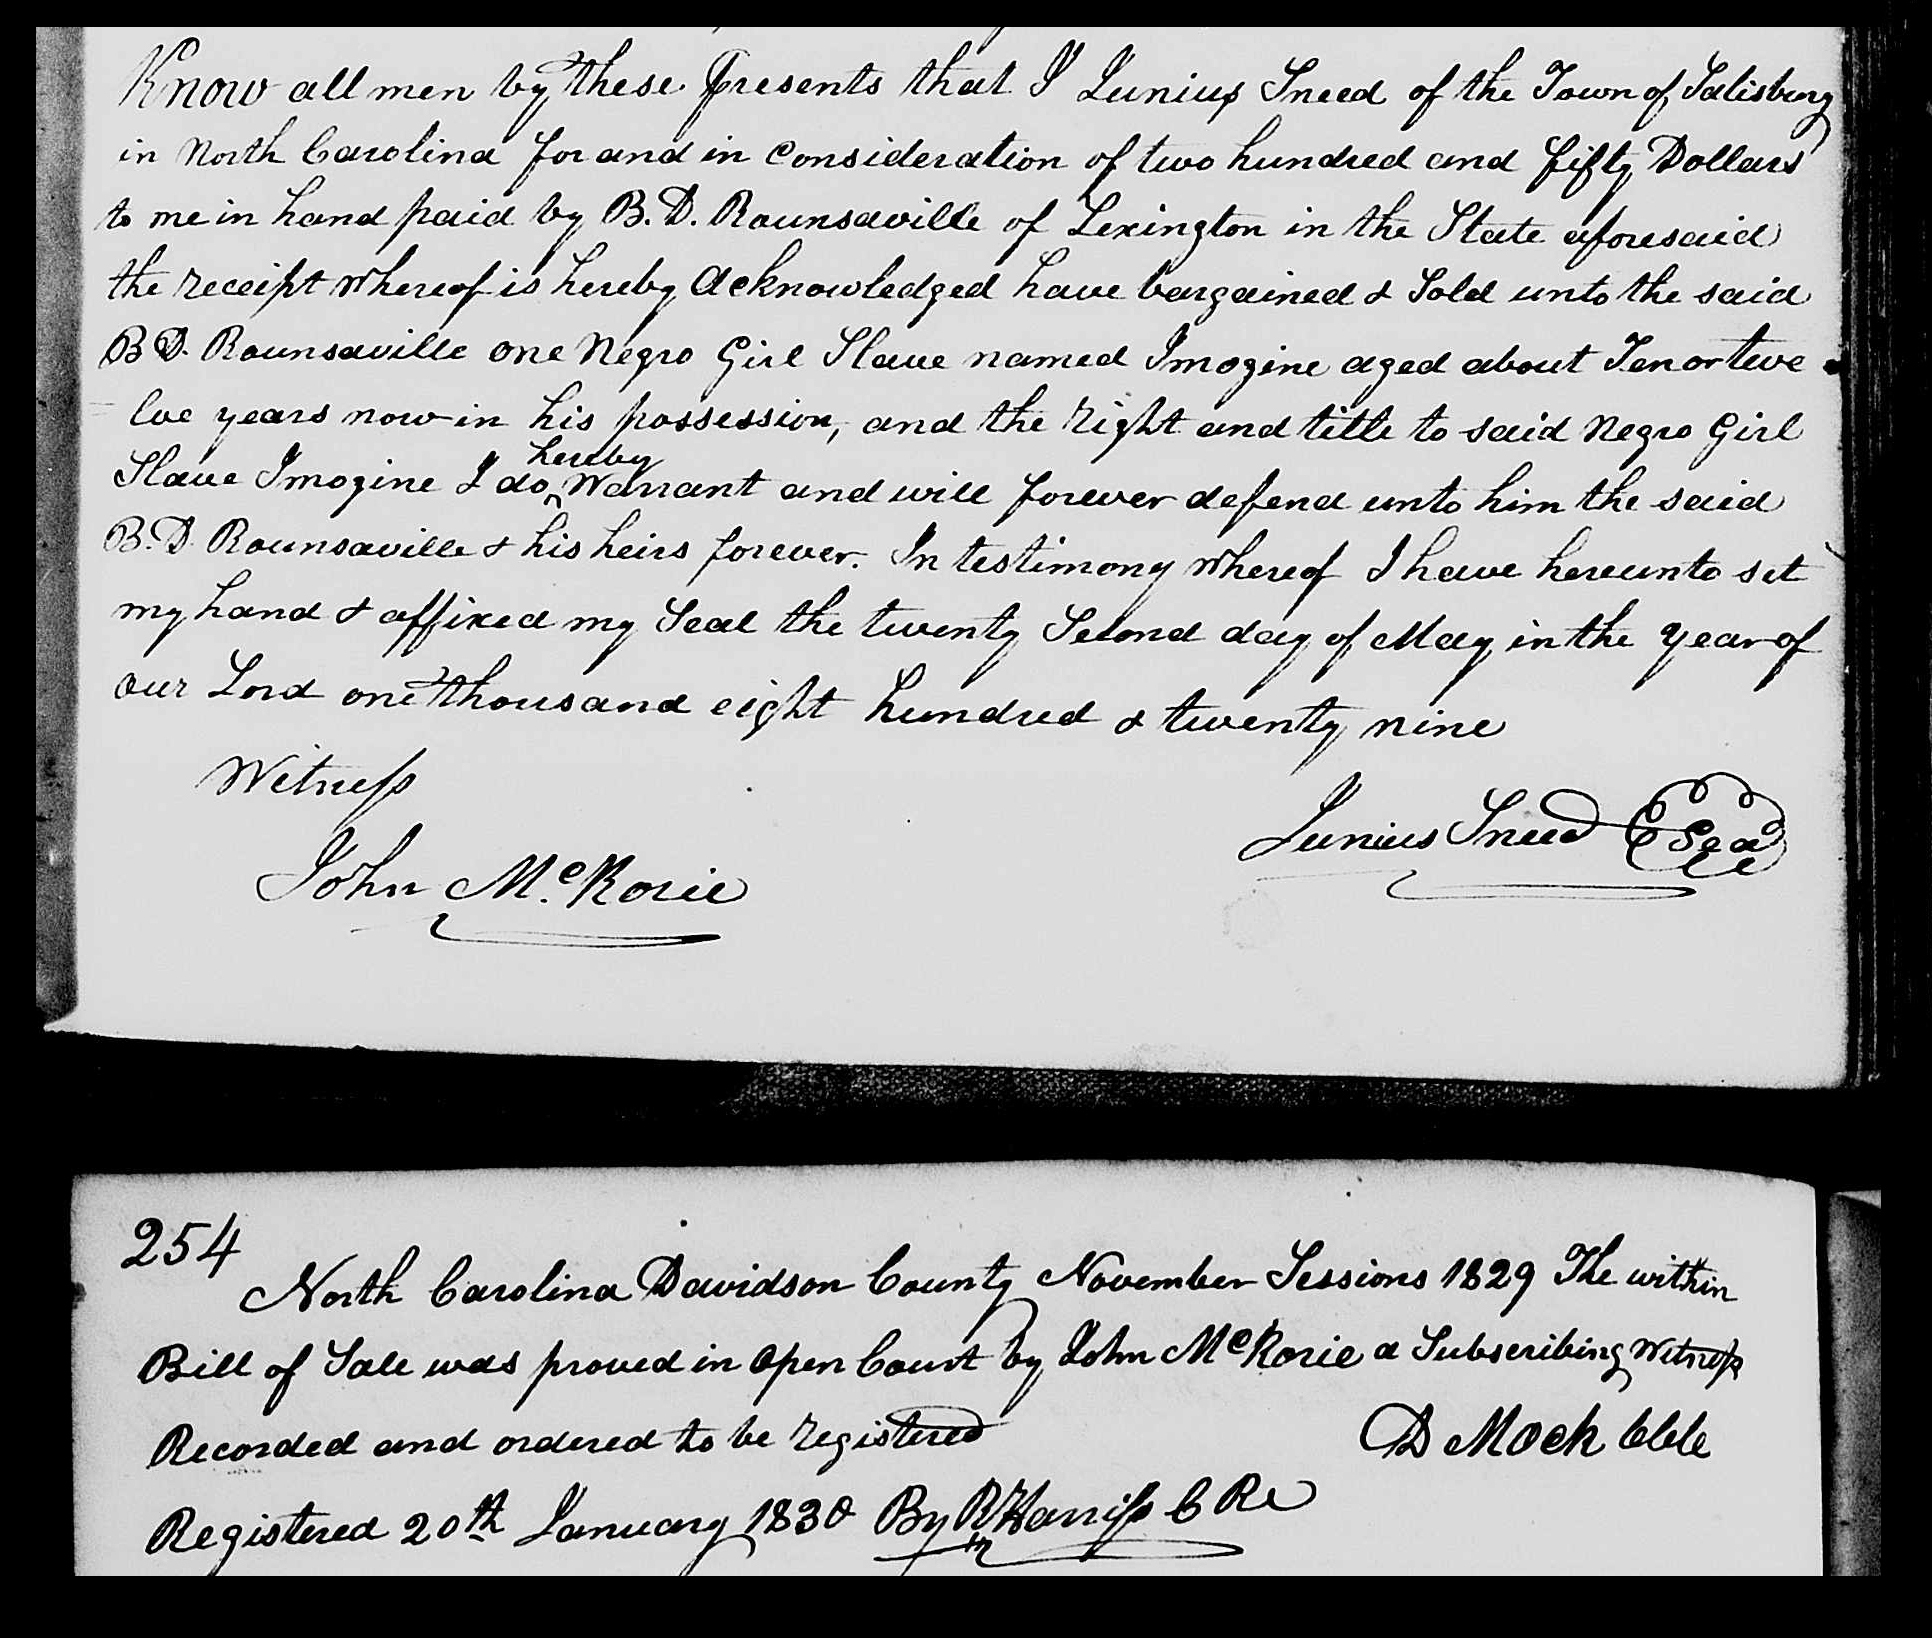 Know all men by these presents that I Junius Sneed of the Town of Salisbury
in North Carolina for and in Consideration of two hundred and fifty Dollars
to me in hand paid by B. D. Rounsaville of Lexington in the State aforesaid
the receipt whereof is hereby Acknowledged have bargained & Sold unto the said
B D. Rounsaville one Negro Girl Slave named Imogine aged about Ten or twe
= lve years now in his possession, and the right and title to said Negro Girl
hereby
Slave Imogine I do ^ Warrant and will forever defend unto him the said
B. D. Rounsaville & his heirs forever. In testimony whereof I have hereunto set
my hand & affixed my Seal the twenty Second day of May in the year of
our Lord one thousand eight hundred & twenty nine
Witness
Junius Sneed Seal
John McRorie
254
North Carolina Davidson County November Sessions 1829 The within
Bill of Sale was proved in Open Court by John McRorie a Subscribing Witness
Recorded and ordered to be registered
D Mock Clk
Registered 20th January 1830 By R Harriss C Re